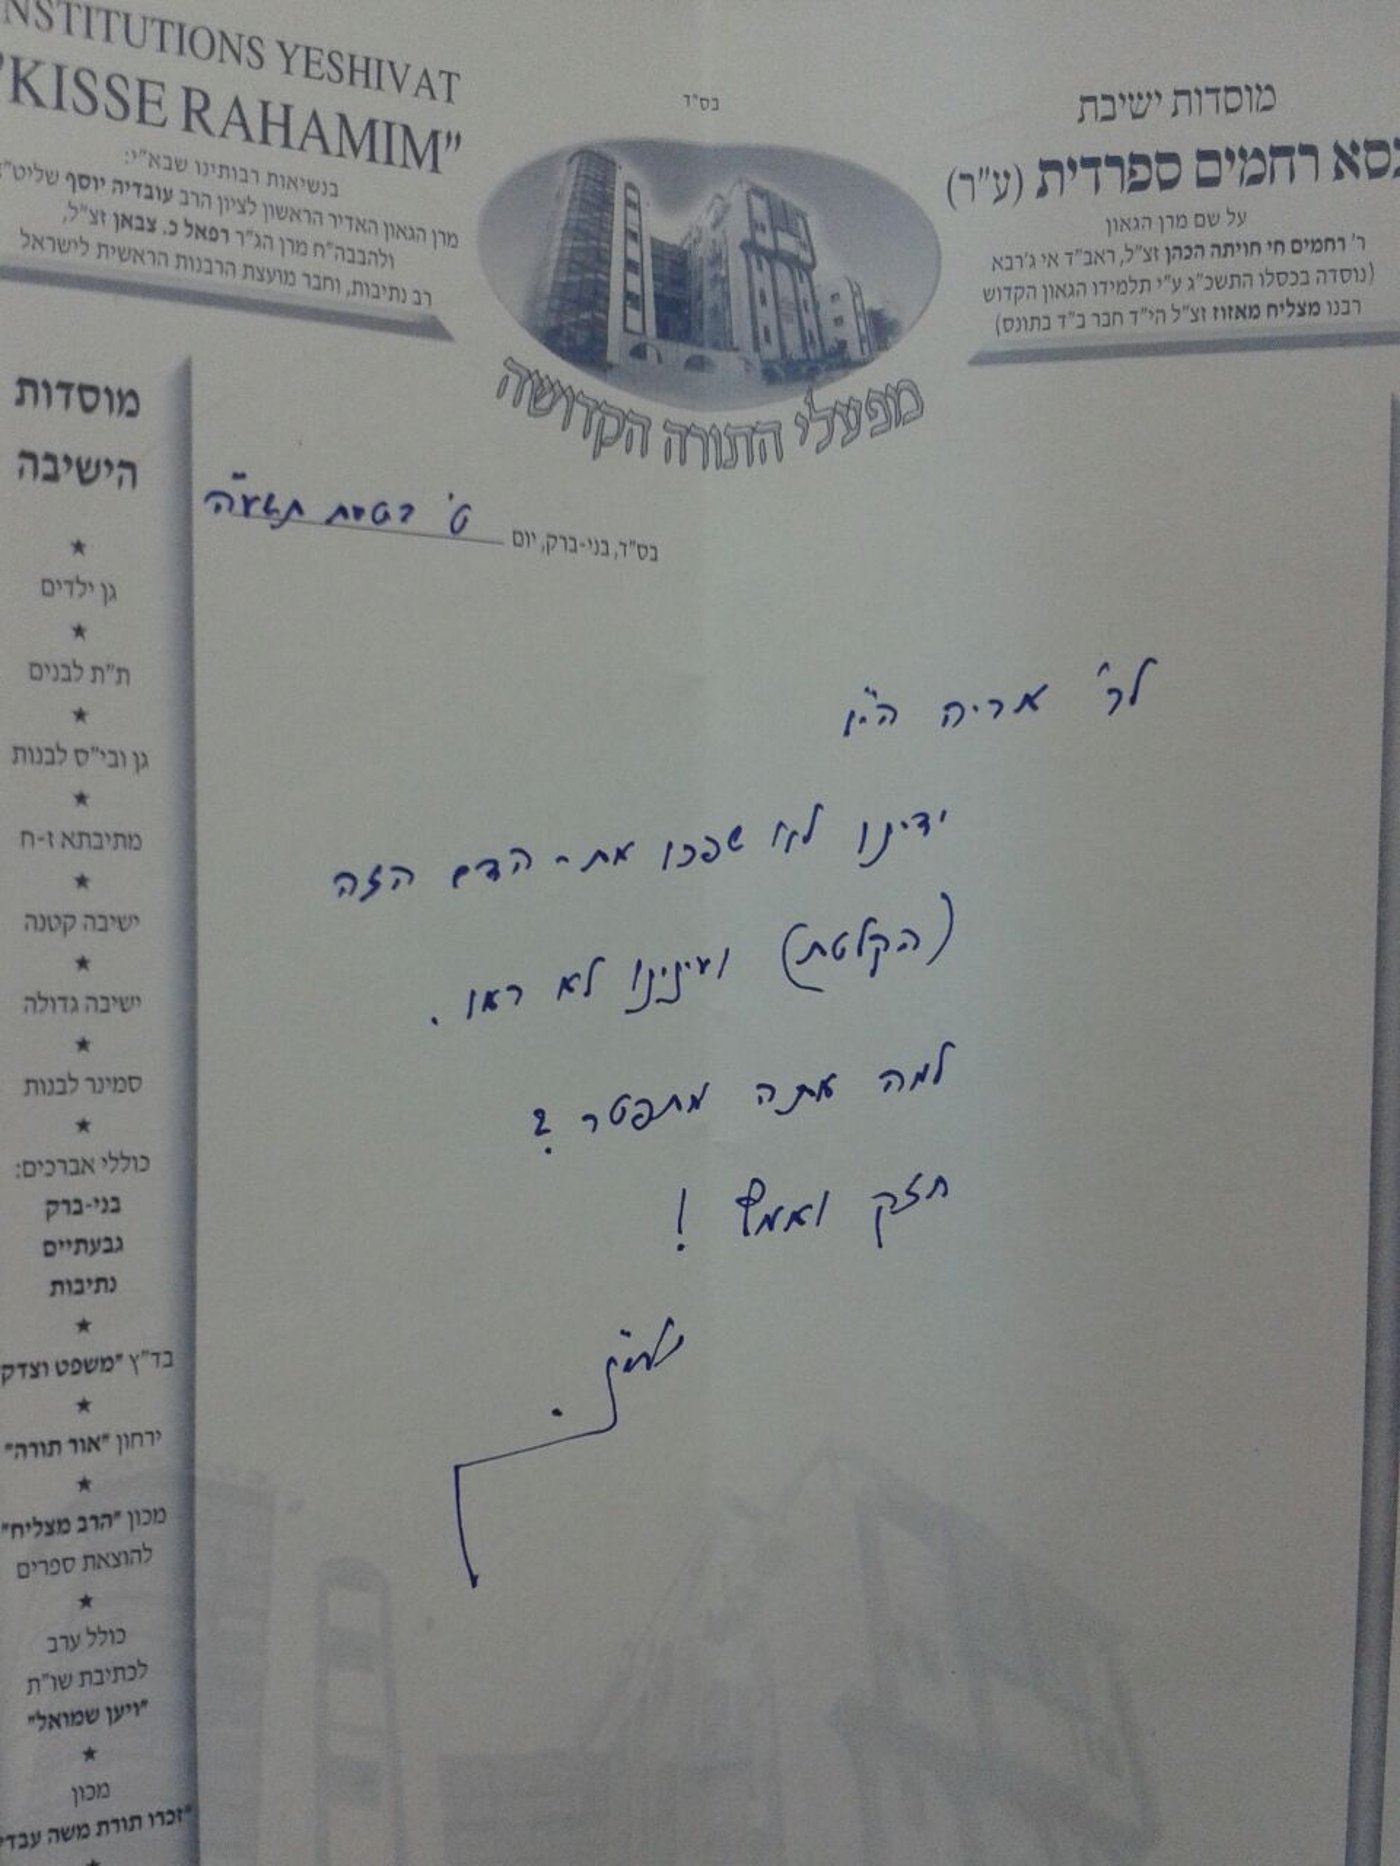 בס"ד
INSTITUTIONS YESHIVAT
"KISSE RAHAMIM"
בנשיאות רבותינו שבא"י:
מרן הגאון האדיר הראשון לציון הרב עובדיה יוסף שליט"א
ולהבבה"ח מרן הג"ר רפאל כ. צבאן זצ"ל,
רב נתיבות, וחבר מועצת הרבנות הראשית לישראל
מוסדות ישיבת
כסא רחמים ספרדית (ע"ר)
על שם מרן הגאון
ר' רחמים חי חויתה הכהן זצ"ל, ראב"ד אי ג'רבא
(נוסדה בכסלו התשכ"ג ע"י תלמידו הגאון הקדוש
רבנו מצליח מאזוז זצ"ל הי"ד חבר ב"ד בתונס)
מפעלי התורה הקדושה
בס"ד, בני-ברק, יום ט' בטבת תשע"ה
לר' אריה הי"ו
ידינו לא שפכו את-הדם הזה
(הקלטת) ועינינו לא ראו.
למה אתה מתפטר?
חזק ואמץ!
נאמ"ן.
מוסדות
הישיבה
★
גן ילדים
★
ת"ת לבנים
★
גן ובי"ס לבנות
★
מתיבתא ז-ח
★
ישיבה קטנה
★
ישיבה גדולה
★
סמינר לבנות
★
כוללי אברכים:
בני-ברק
גבעתיים
נתיבות
★
בד"ץ "משפט וצדק"
★
ירחון "אור תורה"
★
מכון "הרב מצליח"
להוצאת ספרים
★
כולל ערב
לכתיבת שו"ת
"ויען שמואל"
★
מכון
"זכרו תורת משה עבדי"
★